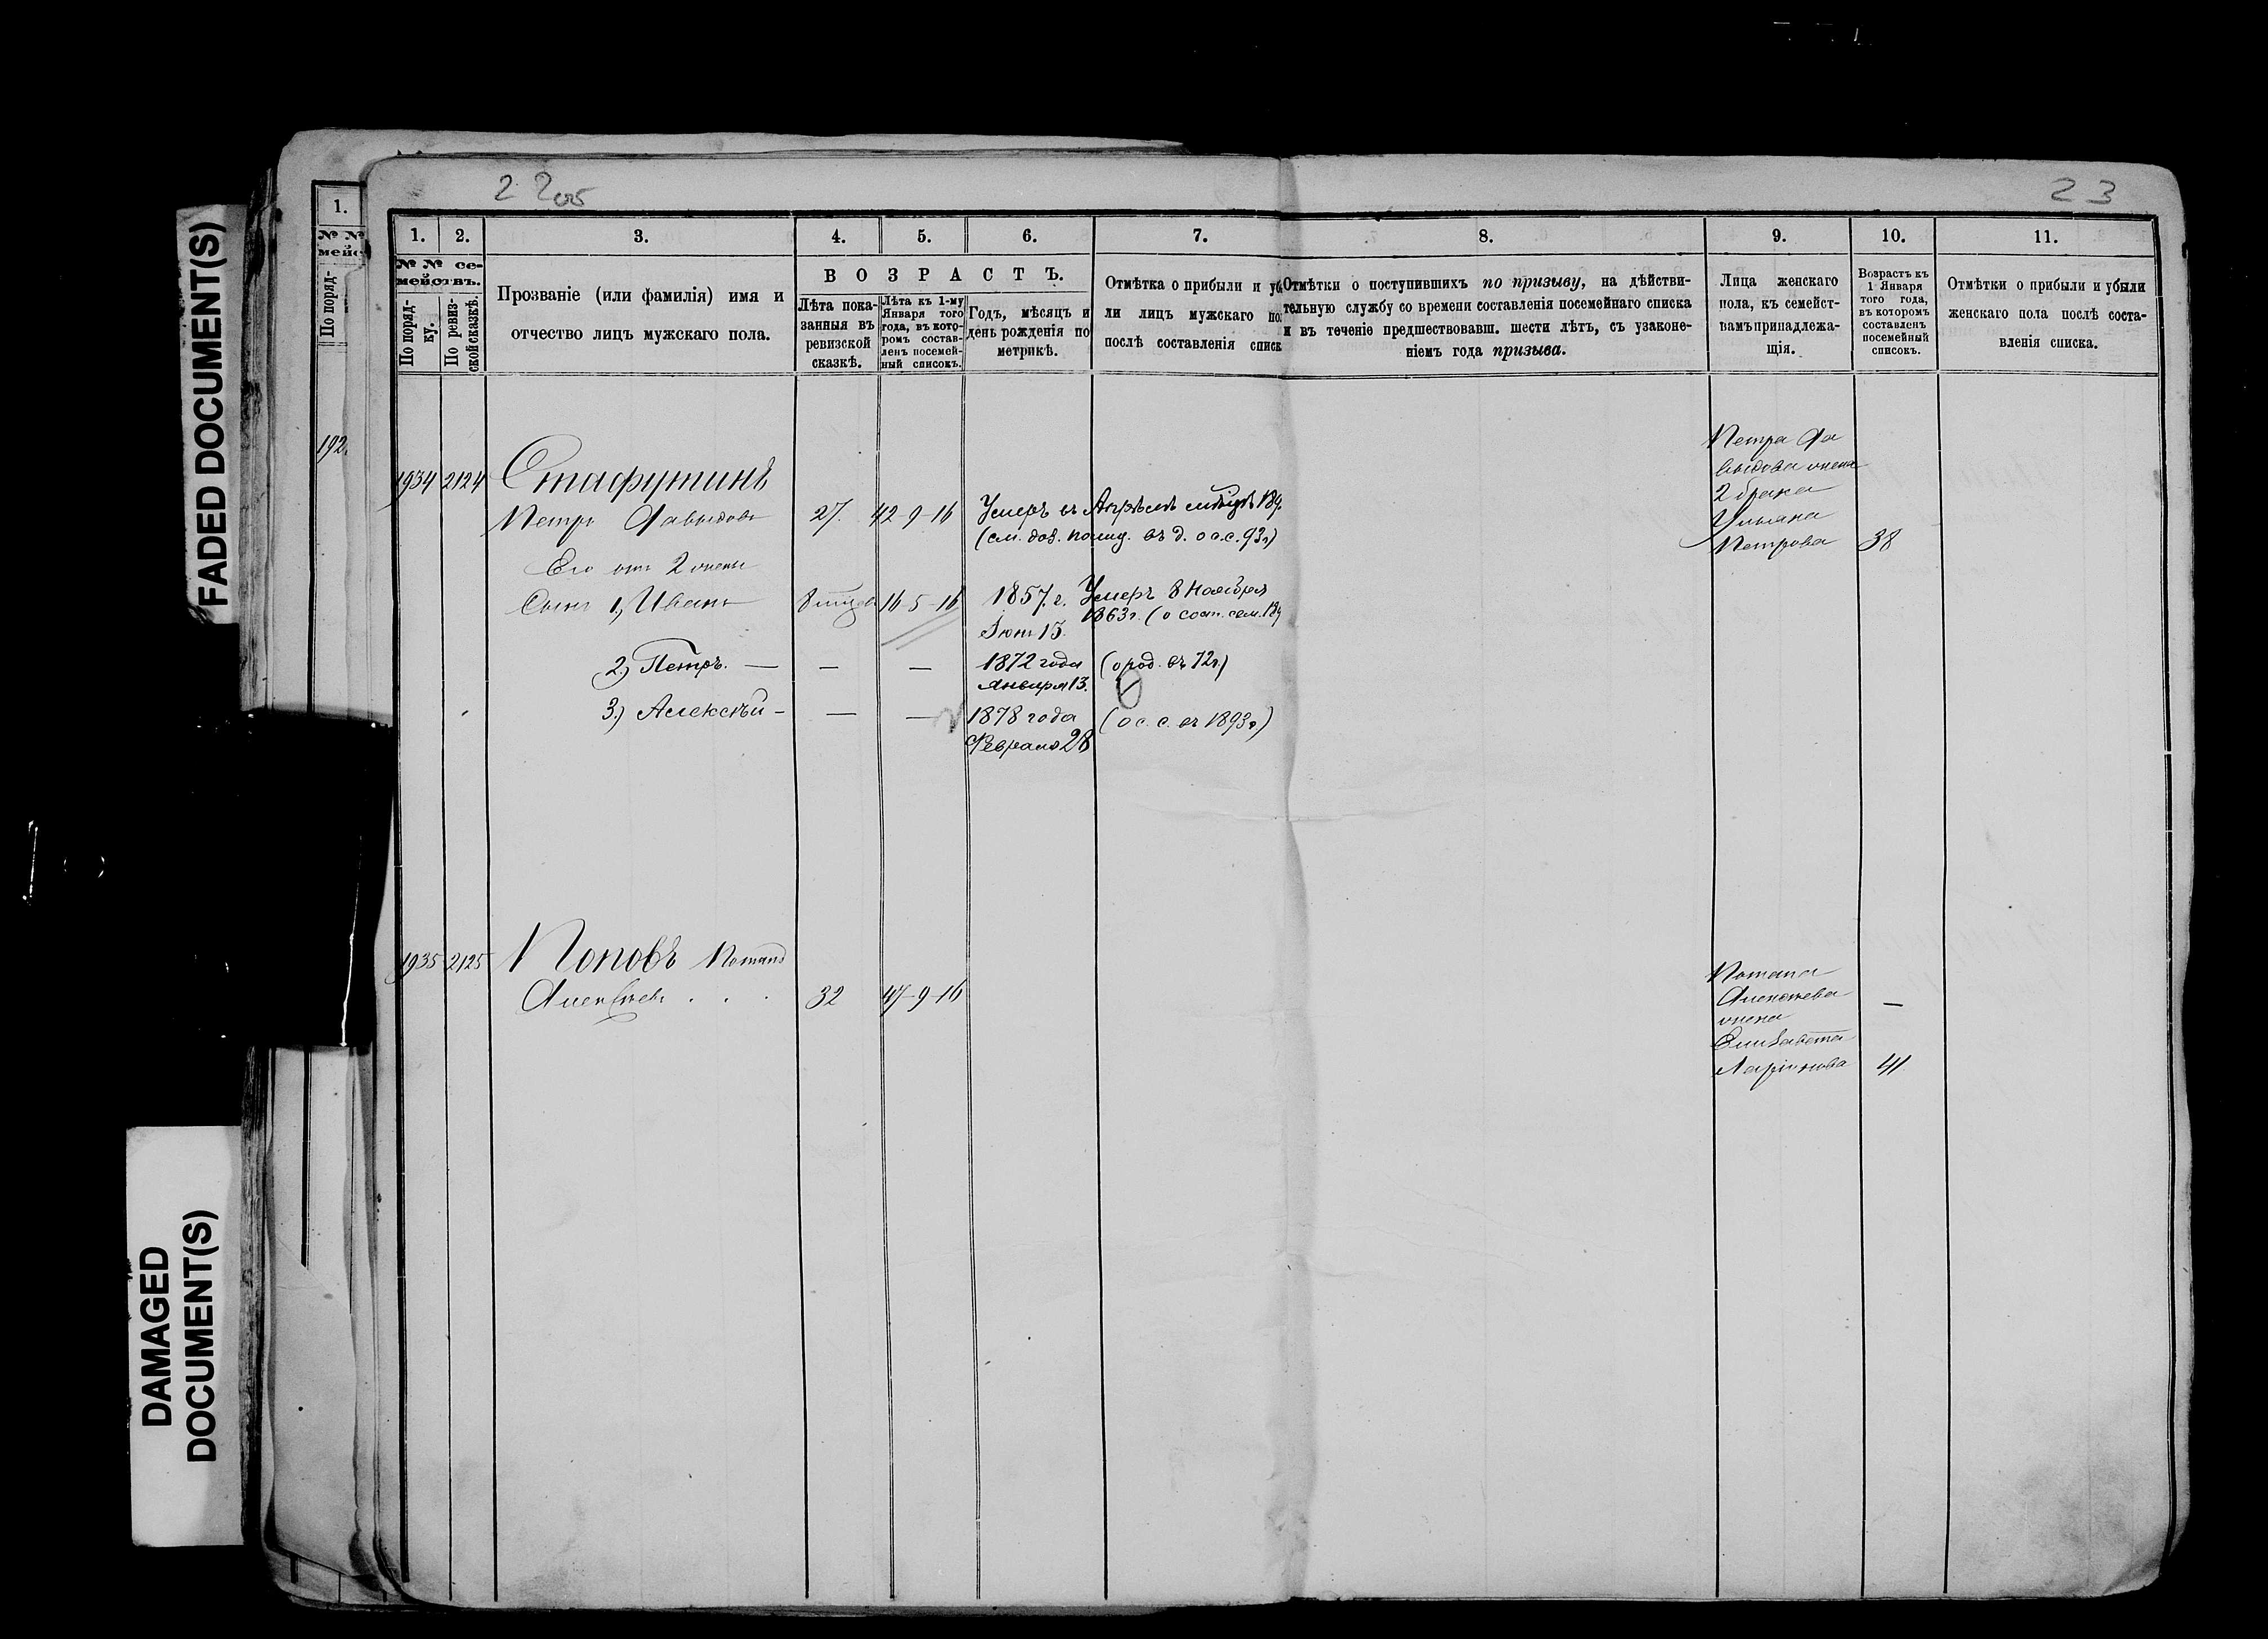 FADED DOCUMENT(S)
DAMAGED
DOCUMENT(S)
1.
№ №
мейс
По поряд-
192
2 2об
23
1. 2. 3. 4. 5. 6. 7. 8. 9. 10. 11.
№ № се-
мействъ.
По поряд-
ку.
По ревиз-
ской сказкѣ.
Прозваніе (или фамилія) имя и
отчество лицъ мужскаго пола.
ВОЗРАСТЪ.
Лѣта пока-
занныя въ
ревизской
сказкѣ.
Лѣта къ 1-му
Января того
года, въ кото-
ромъ состав-
ленъ посемей-
ный списокъ.
Годъ, мѣсяцъ и
день рожденія по
метрикѣ.
Отмѣтка о прибыли и уб
ли лицъ мужскаго по
послѣ составленія списк
Отмѣтки о поступившихъ по призыву, на дѣйстви-
тельную службу со времени составленія посемейнаго списка
и въ теченіе предшествовавш. шести лѣтъ, съ узаконе-
ніемъ года призыва.
Лица женскаго
пола, къ семейст-
вамъ принадлежа-
щія.
Возрастъ къ
1 Января
того года,
въ которомъ
составленъ
посемейный
списокъ.
Отмѣтки о прибыли и убыли
женскаго пола послѣ соста-
вленія списка.
1934 2124 Стафутинъ
Петръ Давыдовъ 27. 42-9-16 Умеръ въ Апрѣлѣ мѣсяцѣ 189
(см. дов. полиц. въ д. о с.с. 93 г)
Его отъ 2 жены
Сынъ 1, Иванъ 16-5-16 1857 г. Умеръ 8 Ноября
Іюн 15. 1863 г. (о сост. сем. 189
2) Петръ. — — — 1872 года (о род. въ 72 г)
Января 13.
3) Алексѣй - — — 1878 года (о с. с. въ 1893 г)
Февраля 28
Петра Да
выдова жена
2 брака
Ульяна
Петрова 38
1935 2125 Поповъ Потапъ
Алексѣевъ . . . 32 47-9-16
Потапа
Алексѣева —
жена
Елизавета
Ларіонова 41